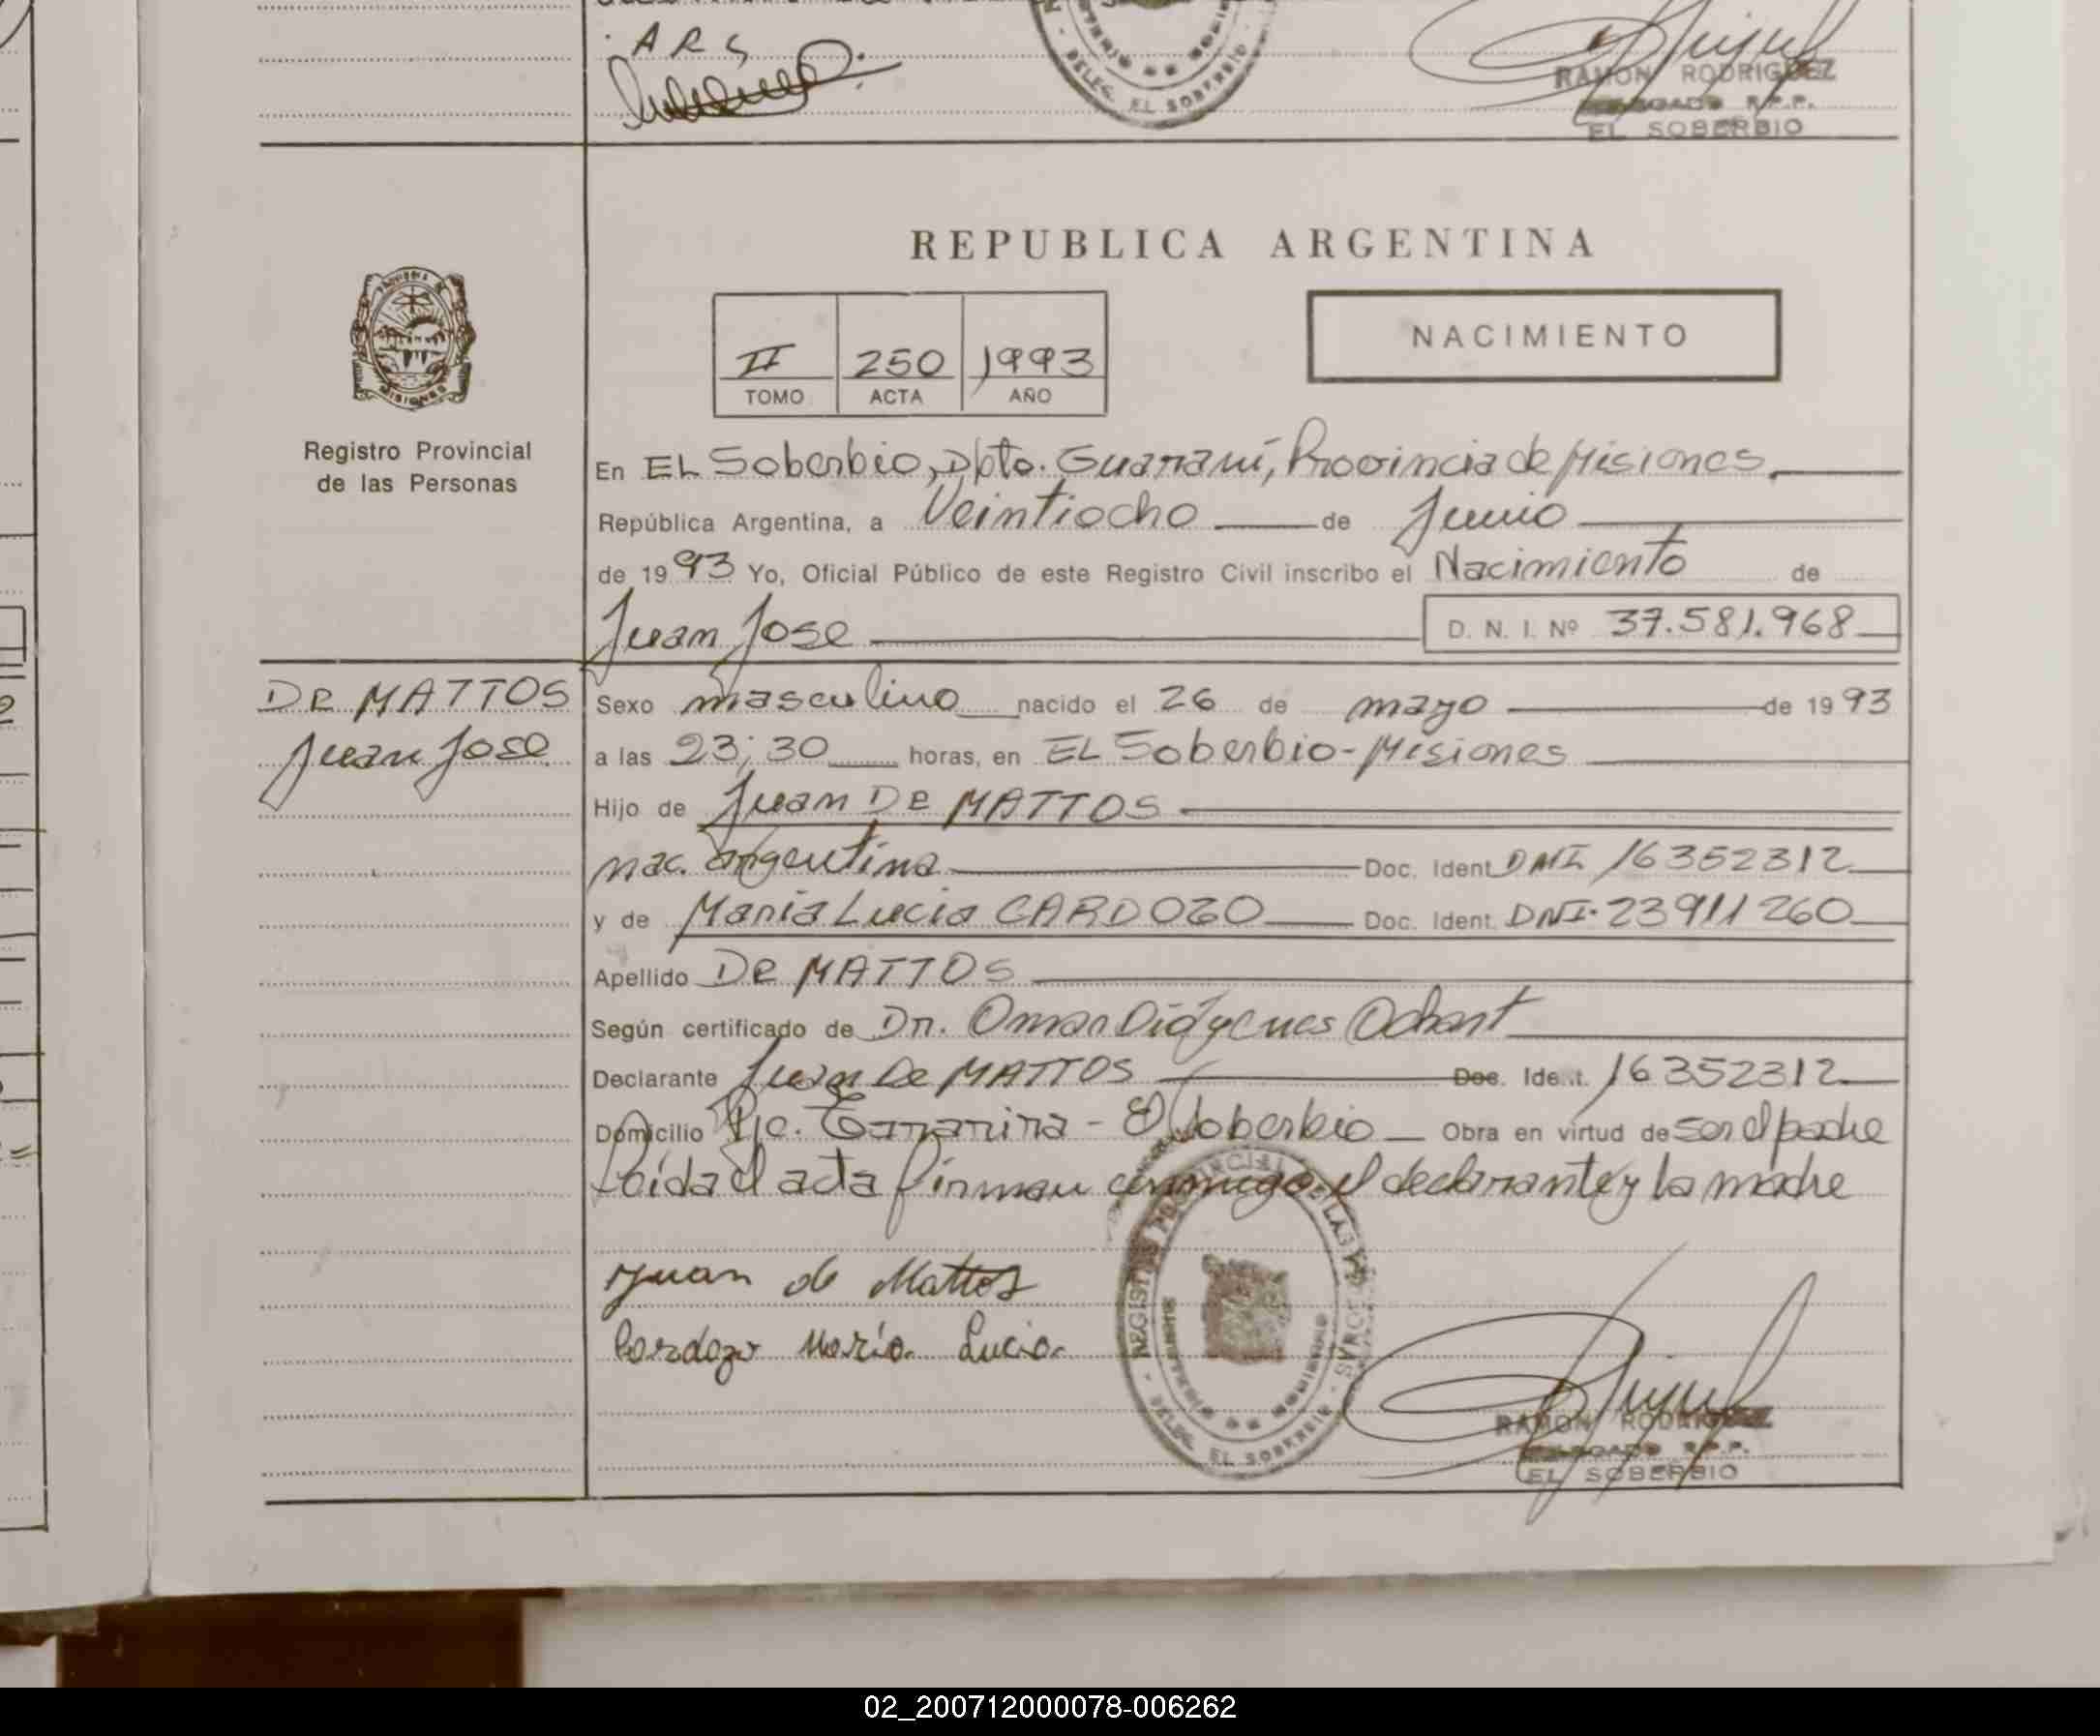 ARS
RAMON RODRIGUEZ
DELEGADO R.P.P.
EL SOBERBIO
DELEG. EL SOBERBIO
REPUBLICA ARGENTINA
II 250 1993
TOMO ACTA AÑO
NACIMIENTO
MISIONES
Registro Provincial
de las Personas
En EL Soberbio, Dpto. Guaraní, Provincia de Misiones
República Argentina, a Veintiocho de Junio
de 1993 Yo, Oficial Público de este Registro Civil inscribo el Nacimiento de
Juan Jose D. N. I. Nº 37.581.968
DE MATTOS
Juan Jose
Sexo masculino nacido el 26 de mayo de 1993
a las 23;30 horas, en EL Soberbio-Misiones
Hijo de Juan De MATTOS
nac. argentina Doc. Ident. DNI 16352312
y de Maria Lucia CARDOZO Doc. Ident. DNI. 23911260
Apellido De MATTOS
Según certificado de Dr. Omar Diógenes
Declarante Juan De MATTOS Doc. Ident. 16352312
Domicilio Pje. - El Soberbio Obra en virtud de ser el padre
Leída el acta firman conmigo el declarante y la madre
Juan de Mattos
Cardozo María Lucia
REGISTRO PROVINCIAL DE LAS PERSONAS
DELEG. EL SOBERBIO
RAMON RODRIGUEZ
DELEGADO R.P.P.
EL SOBERBIO
02_200712000078-006262